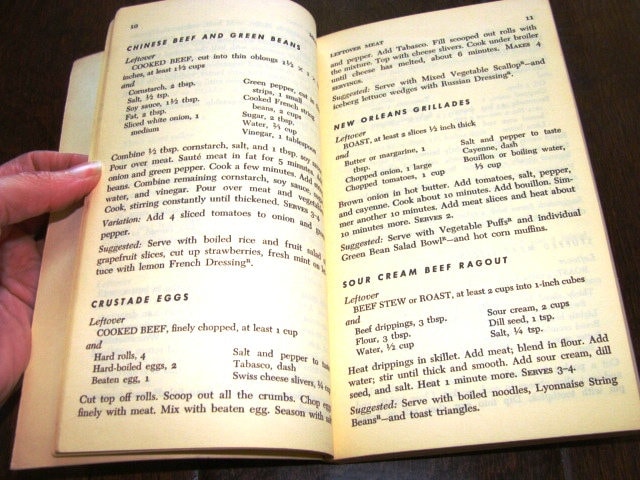 10
CHINESE BEEF AND GREEN BEANS
Leftover
COOKED BEEF, cut into thin oblongs 1½ ×
inches, at least 1½ cups
and
Cornstarch, 2 tbsp.
Salt, ½ tsp.
Soy sauce, 1½ tbsp.
Fat, 2 tbsp.
Sliced white onion, 1
medium
Green pepper, cut in
strips, 1 small
Cooked French
beans, 2 cups
Sugar, 2 tbsp.
Water, ¾ cup
Vinegar, 1 tablespoon
Combine ½ tbsp. cornstarch, salt, and 1 tbsp. soy
Pour over meat. Sauté meat in fat for 5 minutes.
onion and green pepper. Cook a few minutes. Add
beans. Combine remaining cornstarch, soy sauce,
water, and vinegar. Pour over meat and vegetables
Cook, stirring constantly until thickened. SERVES 3-4
Variation: Add 4 sliced tomatoes to onion and
pepper.
Suggested: Serve with boiled rice and fruit salad
grapefruit slices, cut up strawberries, fresh mint on
tuce with lemon French Dressingᴿ.
CRUSTADE EGGS
Leftover
COOKED BEEF, finely chopped, at least 1 cup
and
Hard rolls, 4
Hard-boiled eggs, 2
Beaten egg, 1
Salt and pepper to taste
Tabasco, dash
Swiss cheese slivers,
Cut top off rolls. Scoop out all the crumbs. Chop egg
finely with meat. Mix with beaten egg. Season with
11
LEFTOVER MEAT
and pepper. Add Tabasco. Fill scooped out rolls with
the mixture. Top with cheese slivers. Cook under broiler
until cheese has melted, about 6 minutes. MAKES 4
SERVINGS.
Suggested: Serve with Mixed Vegetable Scallopᴿ—and
iceberg lettuce wedges with Russian Dressingᴿ.
NEW ORLEANS GRILLADES
Leftover
ROAST, at least 2 slices ½ inch thick
and
Butter or margarine, 1
tbsp.
Chopped onion, 1 large
Chopped tomatoes, 1 cup
Salt and pepper to taste
Cayenne, dash
Bouillon or boiling water,
½ cup
Brown onion in hot butter. Add tomatoes, salt, pepper,
and cayenne. Cook about 10 minutes. Add bouillon. Sim-
mer another 10 minutes. Add meat slices and heat about
10 minutes more. SERVES 2.
Suggested: Serve with Vegetable Puffsᴿ and individual
Green Bean Salad Bowlᴿ—and hot corn muffins.
SOUR CREAM BEEF RAGOUT
Leftover
BEEF STEW or ROAST, at least 2 cups into 1-inch cubes
and
Beef drippings, 3 tbsp.
Flour, 3 tbsp.
Water, ½ cup
Sour cream, 2 cups
Dill seed, 1 tsp.
Salt, ¼ tsp.
Heat drippings in skillet. Add meat; blend in flour. Add
water; stir until thick and smooth. Add sour cream, dill
seed, and salt. Heat 1 minute more. SERVES 3-4.
Suggested: Serve with boiled noodles, Lyonnaise String
Beansᴿ—and toast triangles.